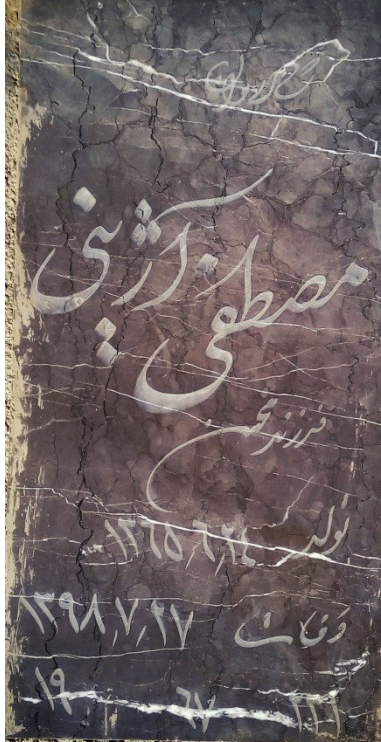 مصطفی آژینی
فرزند محسن
تولد ۱۳۶۵٫۶٫۲۴
وفات ۱۳۹۸٫۷٫۲۷
۱۹ ۶۷